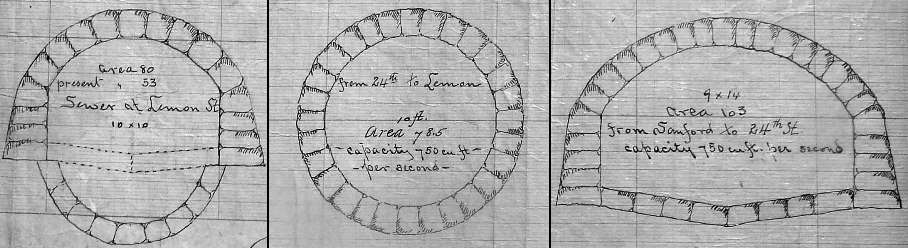 Area 80
present " 53
Sewer at Lemon St
10 x 10
from 24th to Lemon
10 ft.
Area 78.5
capacity 750 cu ft -
- per second -
9 x 14
Area 103
from Sanford to 24th St.
capacity 750 cu ft. per second